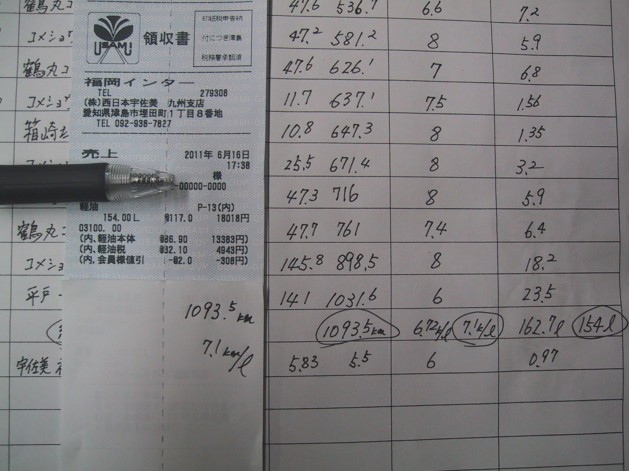 USAMI
領収書
印紙税申告納
付につき津島
税務署承認済
福岡インター
TEL 279308
(株)西日本宇佐美 九州支店
愛知県津島市埋田町1丁目8番地
TEL 092-938-7827
売上 2011年 6月16日
17:38
様
-00000-0000
軽油 P-13(内)
154.00L @117.0 18018円
03100.00
(内、軽油本体 @86.90 13383円)
(内、軽油税 @32.10 4943円)
(内、会員様値引 -@2.0 -308円)
1093.5km
7.1km/l
鶴丸コ 47.6 536.7 6.6 7.2
コメショウ 47.2 581.2 8 5.9
鶴丸コ 47.6 626.1 7 6.8
コメショウ 11.7 637.1 7.5 1.56
箱崎 10.8 647.3 8 1.35
コメショ 25.5 671.4 8 3.2
47.3 716 8 5.9
鶴丸コ 47.7 761 7.4 6.4
コメショ 145.8 898.5 8 18.2
平戸 141 1031.6 6 23.5
1093.5km 6.72k/l 7.1k/l 162.7l 154l
宇佐美 5.83 5.5 6 0.97